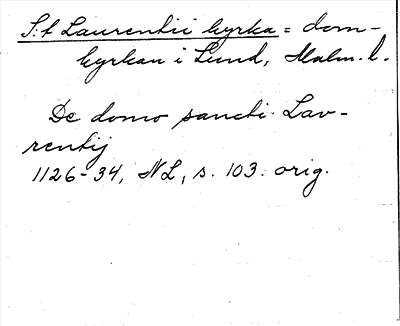 S:t Laurentii kyrka = dom-
kyrkan i Lund, Malm. l.
De domo sancti Lav-
rentij
1126-34, NL, s. 103. orig.